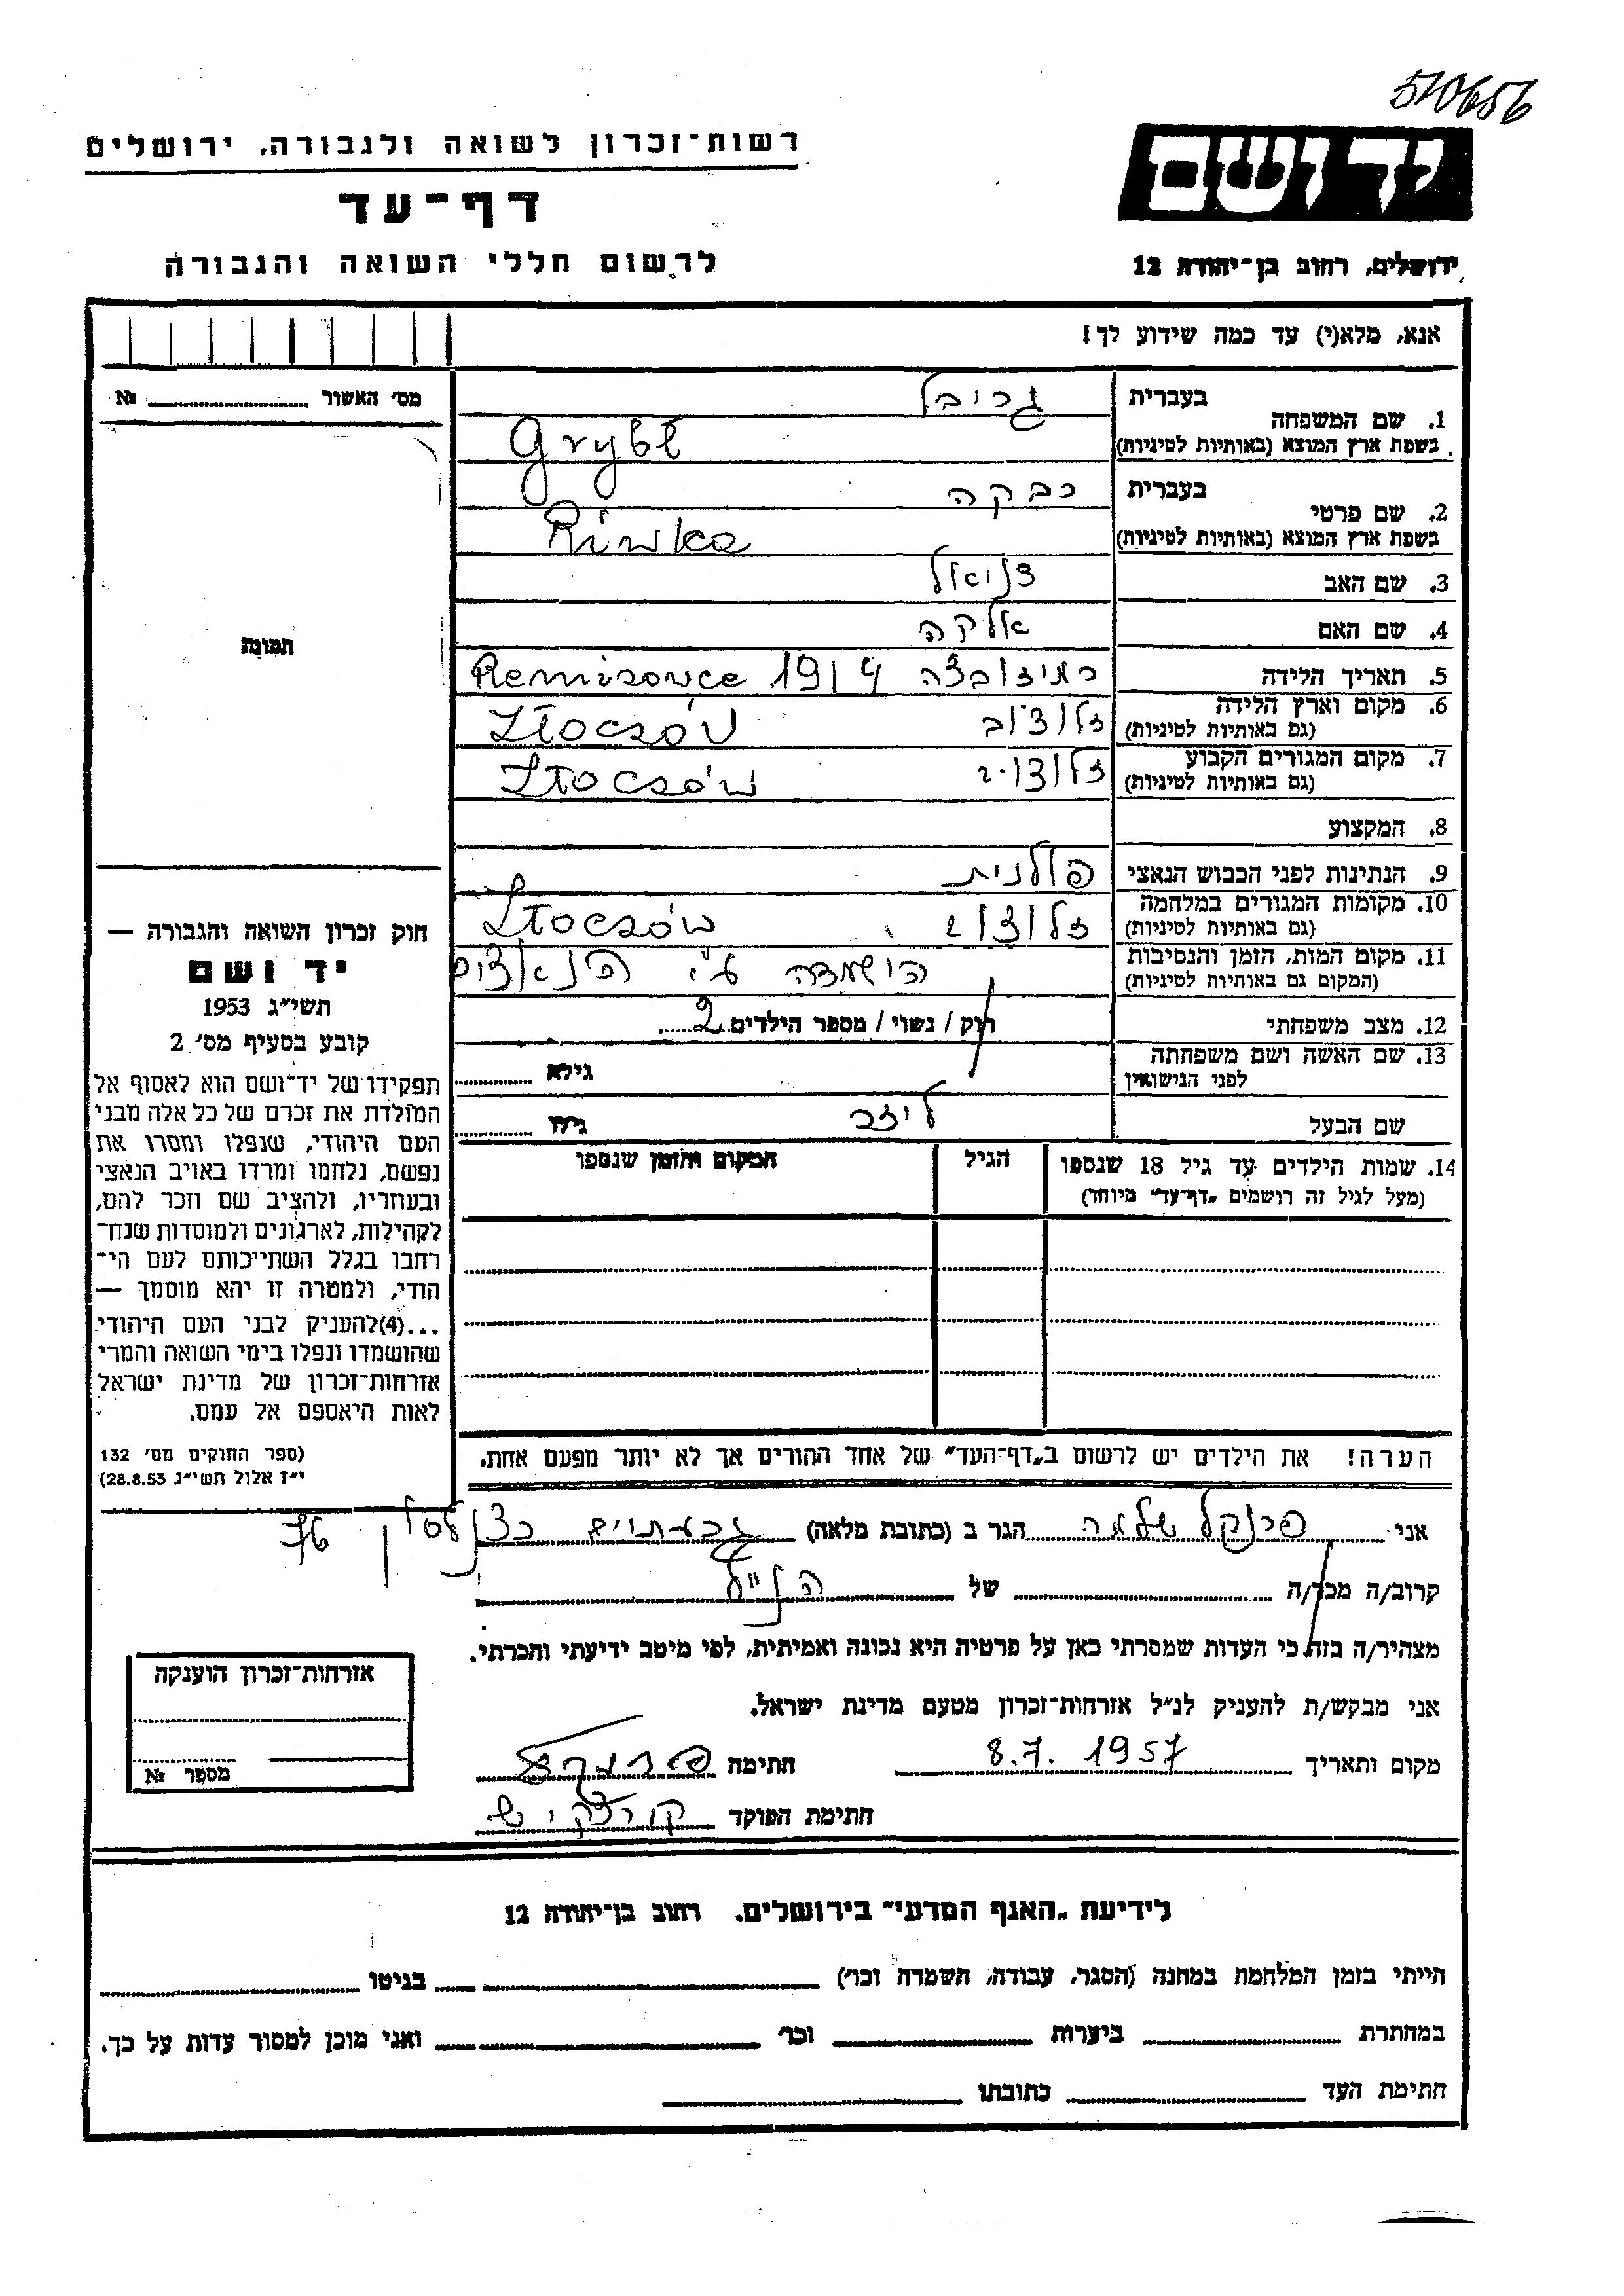 510656
רשות-זכרון לשואה ולגבורה, ירושלים
דף-עד
לרשום חללי השואה והגבורה
יד ושם
ירושלים, רחוב בן-יהודה 12
אנא, מלא(י) עד כמה שידוע לך!
מס' האשור № ........
תמונה
1. שם המשפחה בעברית גריבל
בשפת ארץ המוצא (באותיות לטיניות) Grybł
2. שם פרטי בעברית רבקה
בשפת ארץ המוצא (באותיות לטיניות) Riwka
3. שם האב דניאל
4. שם האם אלקה
5. תאריך הלידה רמיזובצה 1914 Remizowce
6. מקום וארץ הלידה (גם באותיות לטיניות) זלוצ'וב Złoczów
7. מקום המגורים הקבוע (גם באותיות לטיניות) זלוצ'וב Złoczów
8. המקצוע
9. הנתינות לפני הכבוש הנאצי פולנית
10. מקומות המגורים במלחמה (גם באותיות לטיניות) זלוצ'וב Złoczów
11. מקום המות, הזמן והנסיבות (המקום גם באותיות לטיניות) הושמדה ע"י הנאצים
12. מצב משפחתי רוק / נשוי / מספר הילדים 2
13. שם האשה ושם משפחתה לפני הנישואין גילא
שם הבעל ליזר גילו
14. שמות הילדים עד גיל 18 שנספו (מעל לגיל זה רושמים „דף-עד" מיוחד) הגיל המקום והזמן שנספו
הערה! את הילדים יש לרשום ב„דף-העד" של אחד ההורים אך לא יותר מפעם אחת.
חוק זכרון השואה והגבורה —
יד ושם
תשי"ג 1953
קובע בסעיף מס' 2
תפקידו של יד-ושם הוא לאסוף אל
המולדת את זכרם של כל אלה מבני
העם היהודי, שנפלו ומסרו את
נפשם, נלחמו ומרדו באויב הנאצי
ובעוזריו, ולהציב שם וזכר להם,
לקהילות, לארגונים ולמוסדות שנח-
רחבו בגלל השתייכותם לעם הי-
הודי, ולמטרה זו יהא מוסמך —
...(4)להעניק לבני העם היהודי
שהושמדו ונפלו בימי השואה והמרי
אזרחות-זכרון של מדינת ישראל
לאות היאספם אל עמם.
(ספר החוקים מס' 132
י"ז אלול תשי"ג 28.8.53)
אני פינקל שלמה הגר ב (כתובת מלאה) גבעתיים כצנלסון 76
קרוב/ה מכר/ה ........ של הנ"ל
מצהיר/ה בזה כי העדות שמסרתי כאן על פרטיה היא נכונה ואמיתית, לפי מיטב ידיעתי והכרתי.
אני מבקש/ת להעניק לנ"ל אזרחות-זכרון מטעם מדינת ישראל.
מקום ותאריך 8.7.1957 חתימה
חתימת הפוקד
אזרחות-זכרון הוענקה
מספר №
לידיעת „האגף המדעי" בירושלים. רחוב בן-יהודה 12
הייתי בזמן המלחמה במחנה (הסגר, עבודה, השמדה וכו') ........ בגיטו ........
במחתרת ........ ביערות ........ וכו' ........ ואני מוכן למסור עדות על כך.
חתימת העד ........ כתובתו ........